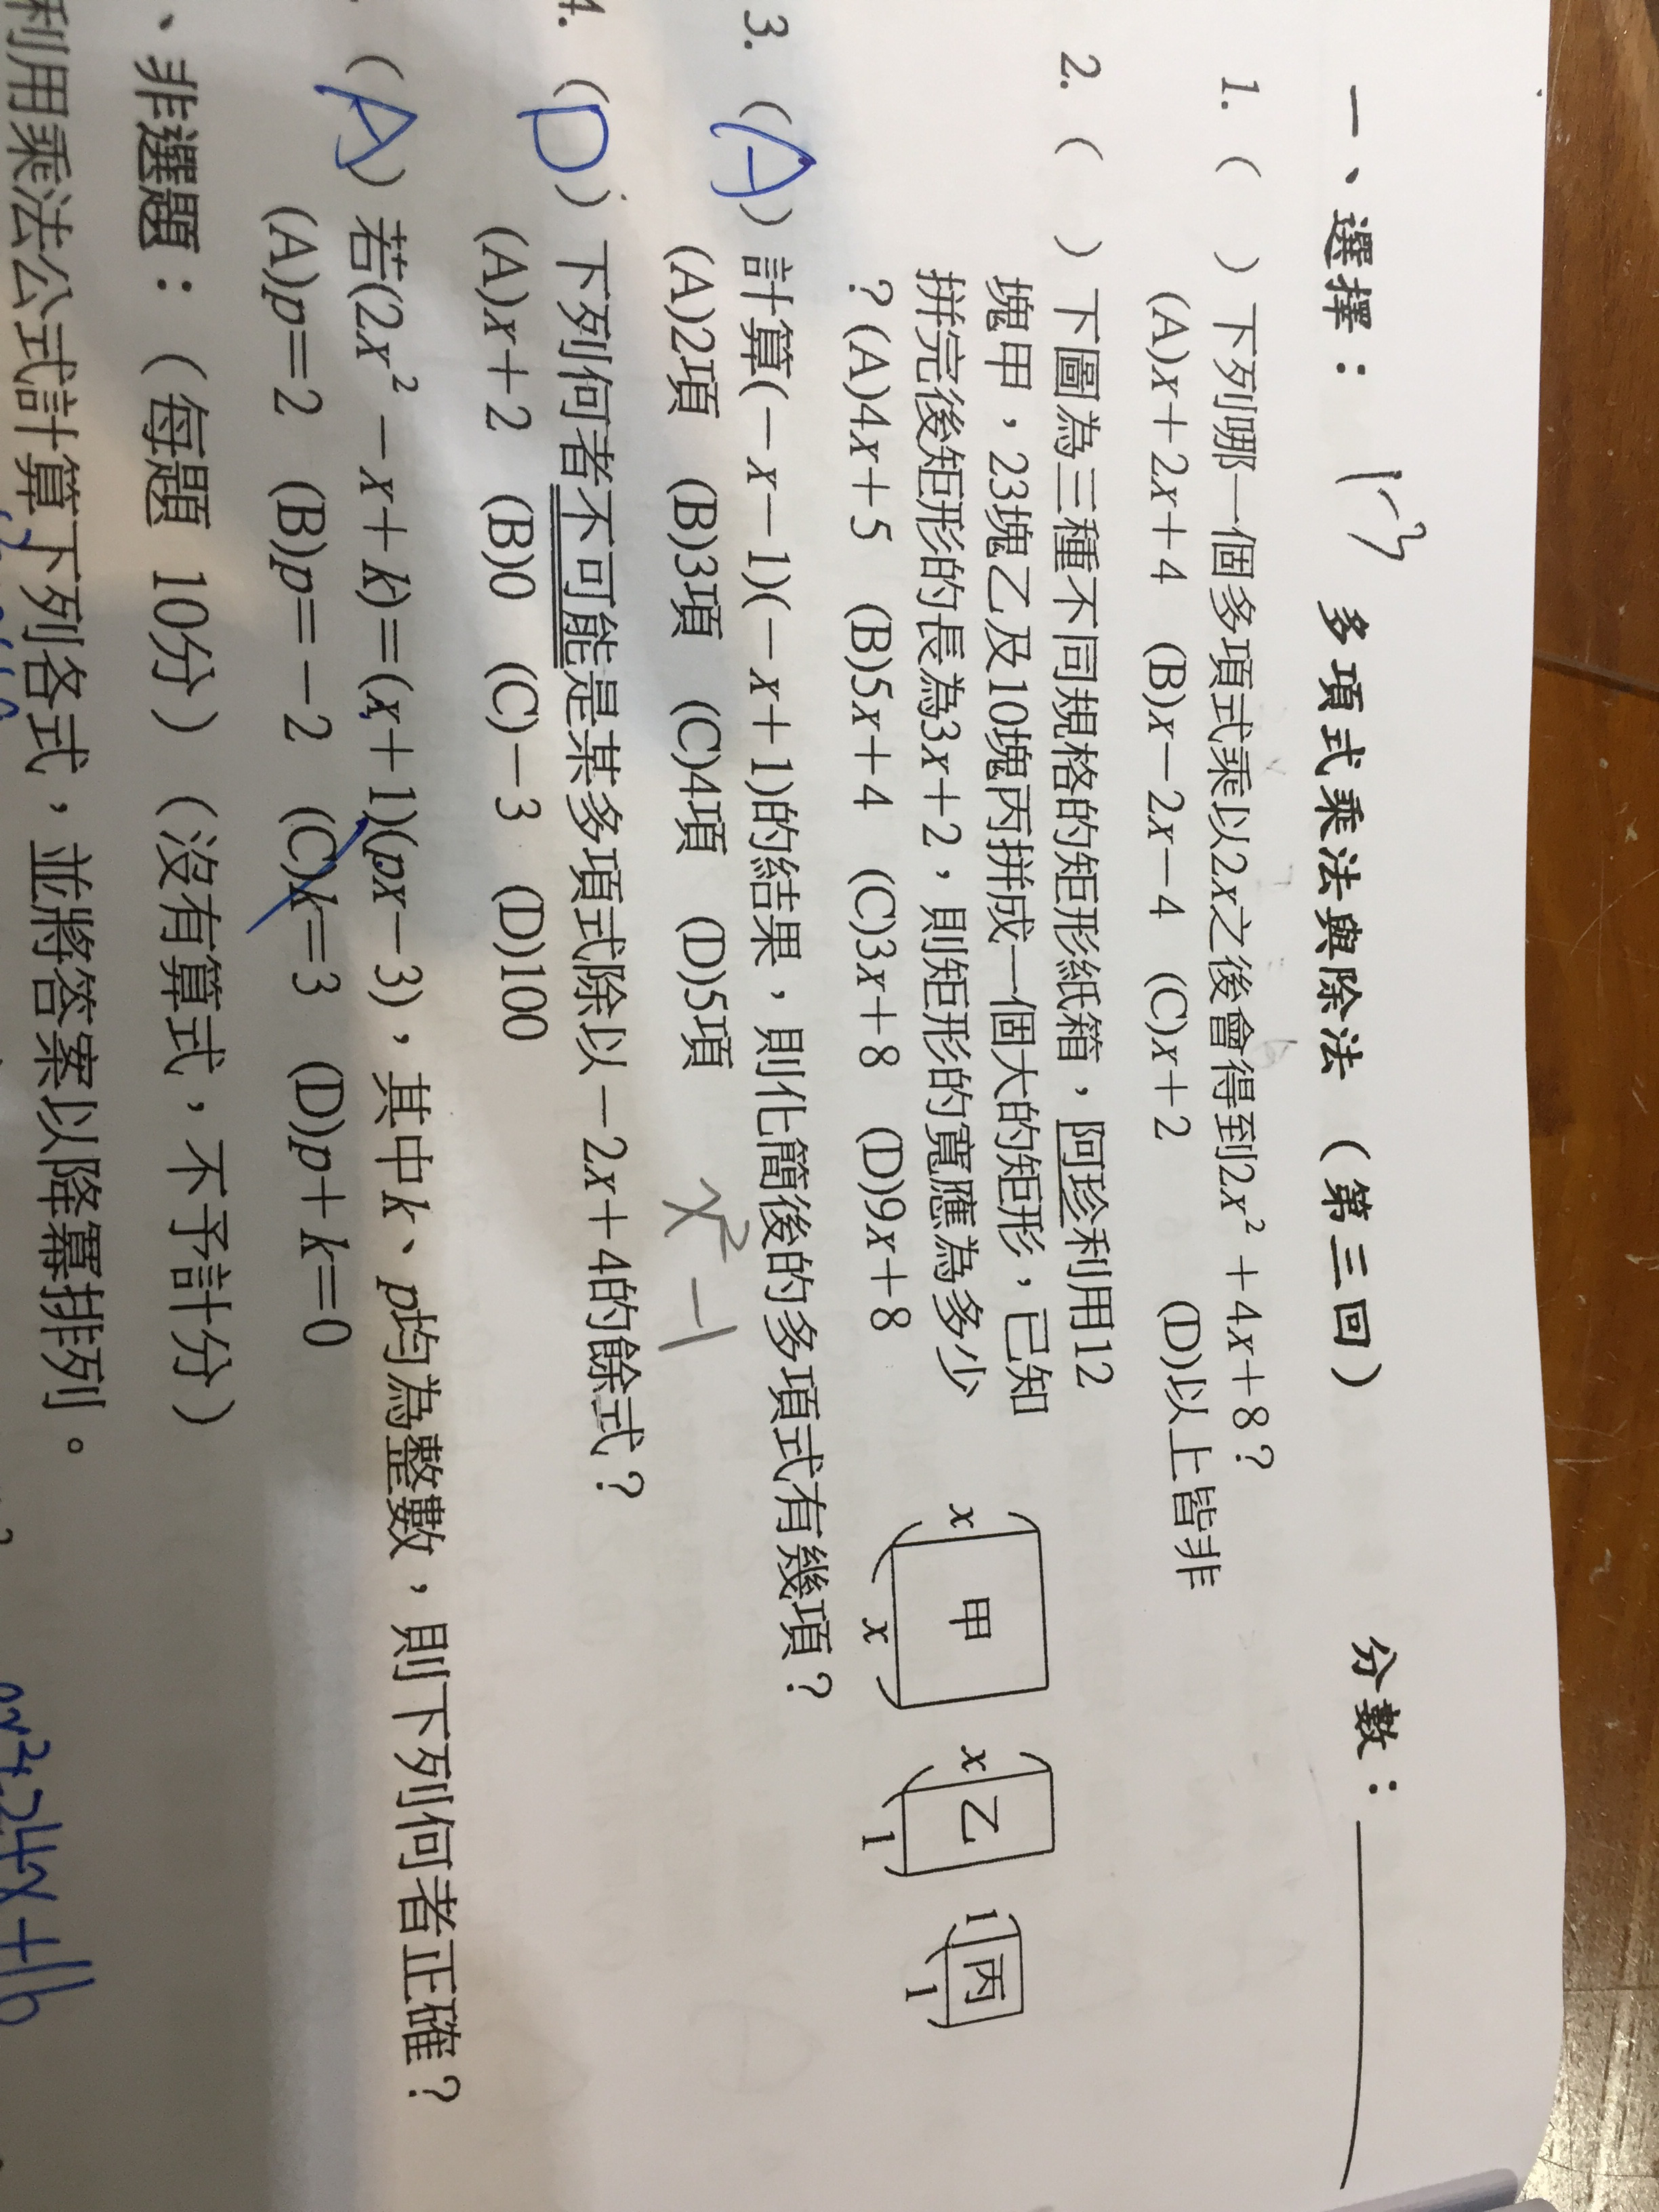 一、選擇： 多項式乘法與除法（第三回） 分數：
1. （ ）下列哪一個多項式乘以2x之後會得到2x²+4x+8？
(A)x+2x+4 (B)x−2x−4 (C)x+2 (D)以上皆非
2. （ ）下圖為三種不同規格的矩形紙箱，阿珍利用12
塊甲，23塊乙及10塊丙拼成一個大的矩形，已知
拼完後矩形的長為3x+2，則矩形的寬應為多少
？(A)4x+5 (B)5x+4 (C)3x+8 (D)9x+8
x 甲 x
x 乙 1
1 丙 1
3. （A）計算(−x−1)(−x+1)的結果，則化簡後的多項式有幾項？
(A)2項 (B)3項 (C)4項 (D)5項
x²−1
4. （D）下列何者不可能是某多項式除以−2x+4的餘式？
(A)x+2 (B)0 (C)−3 (D)100
（A）若(2x²−x+k)=(x+1)(px−3)，其中k、p均為整數，則下列何者正確？
(A)p=2 (B)p=−2 (C)k=3 (D)p+k=0
、非選題：（每題 10分）（沒有算式，不予計分）
利用乘法公式計算下列各式，並將答案以降冪排列。